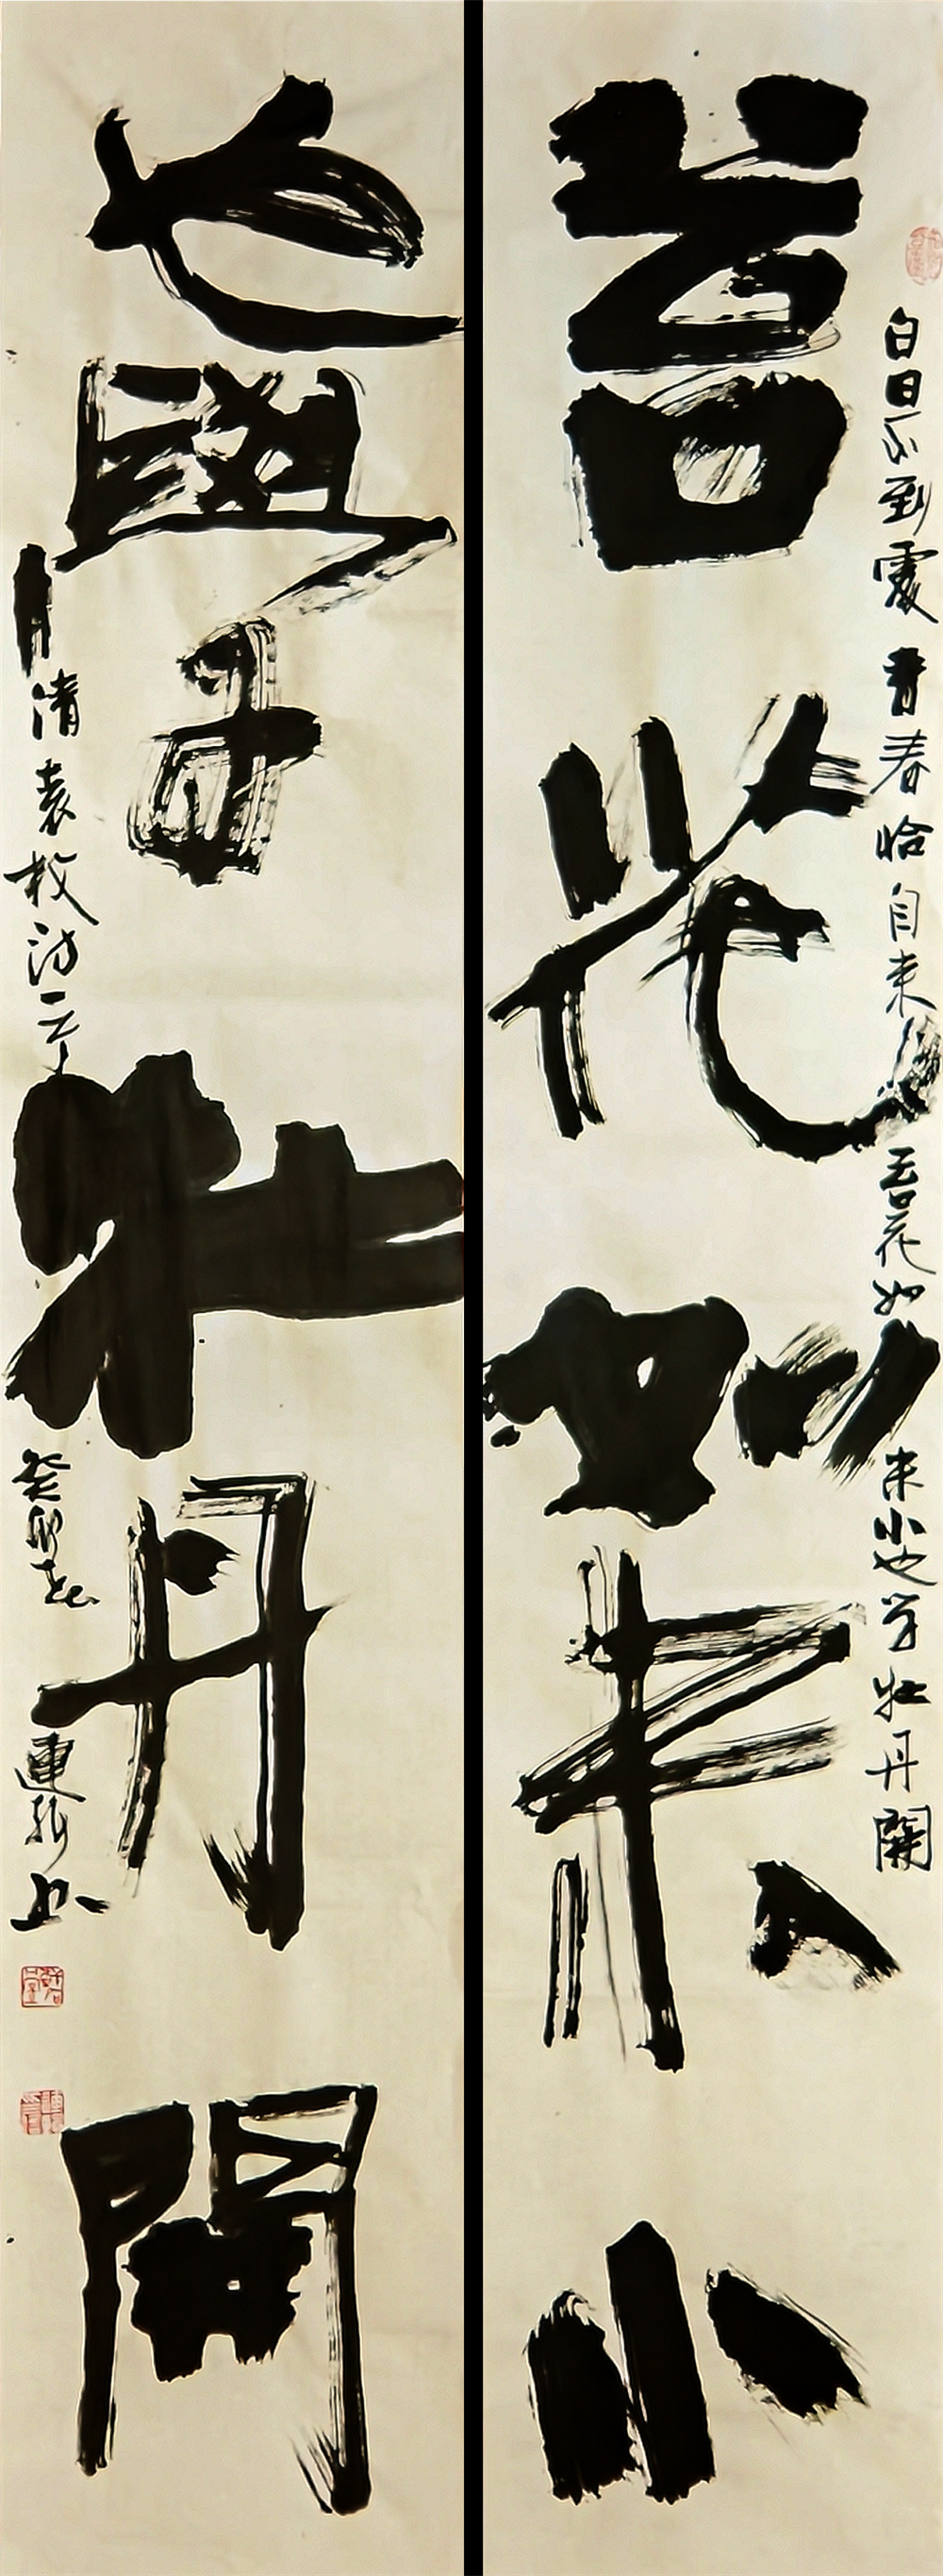 白日不到處青春恰自来苔花如米小也学牡丹開
苔花如米小
也學牡丹開
清袁枚诗一首癸卯春連